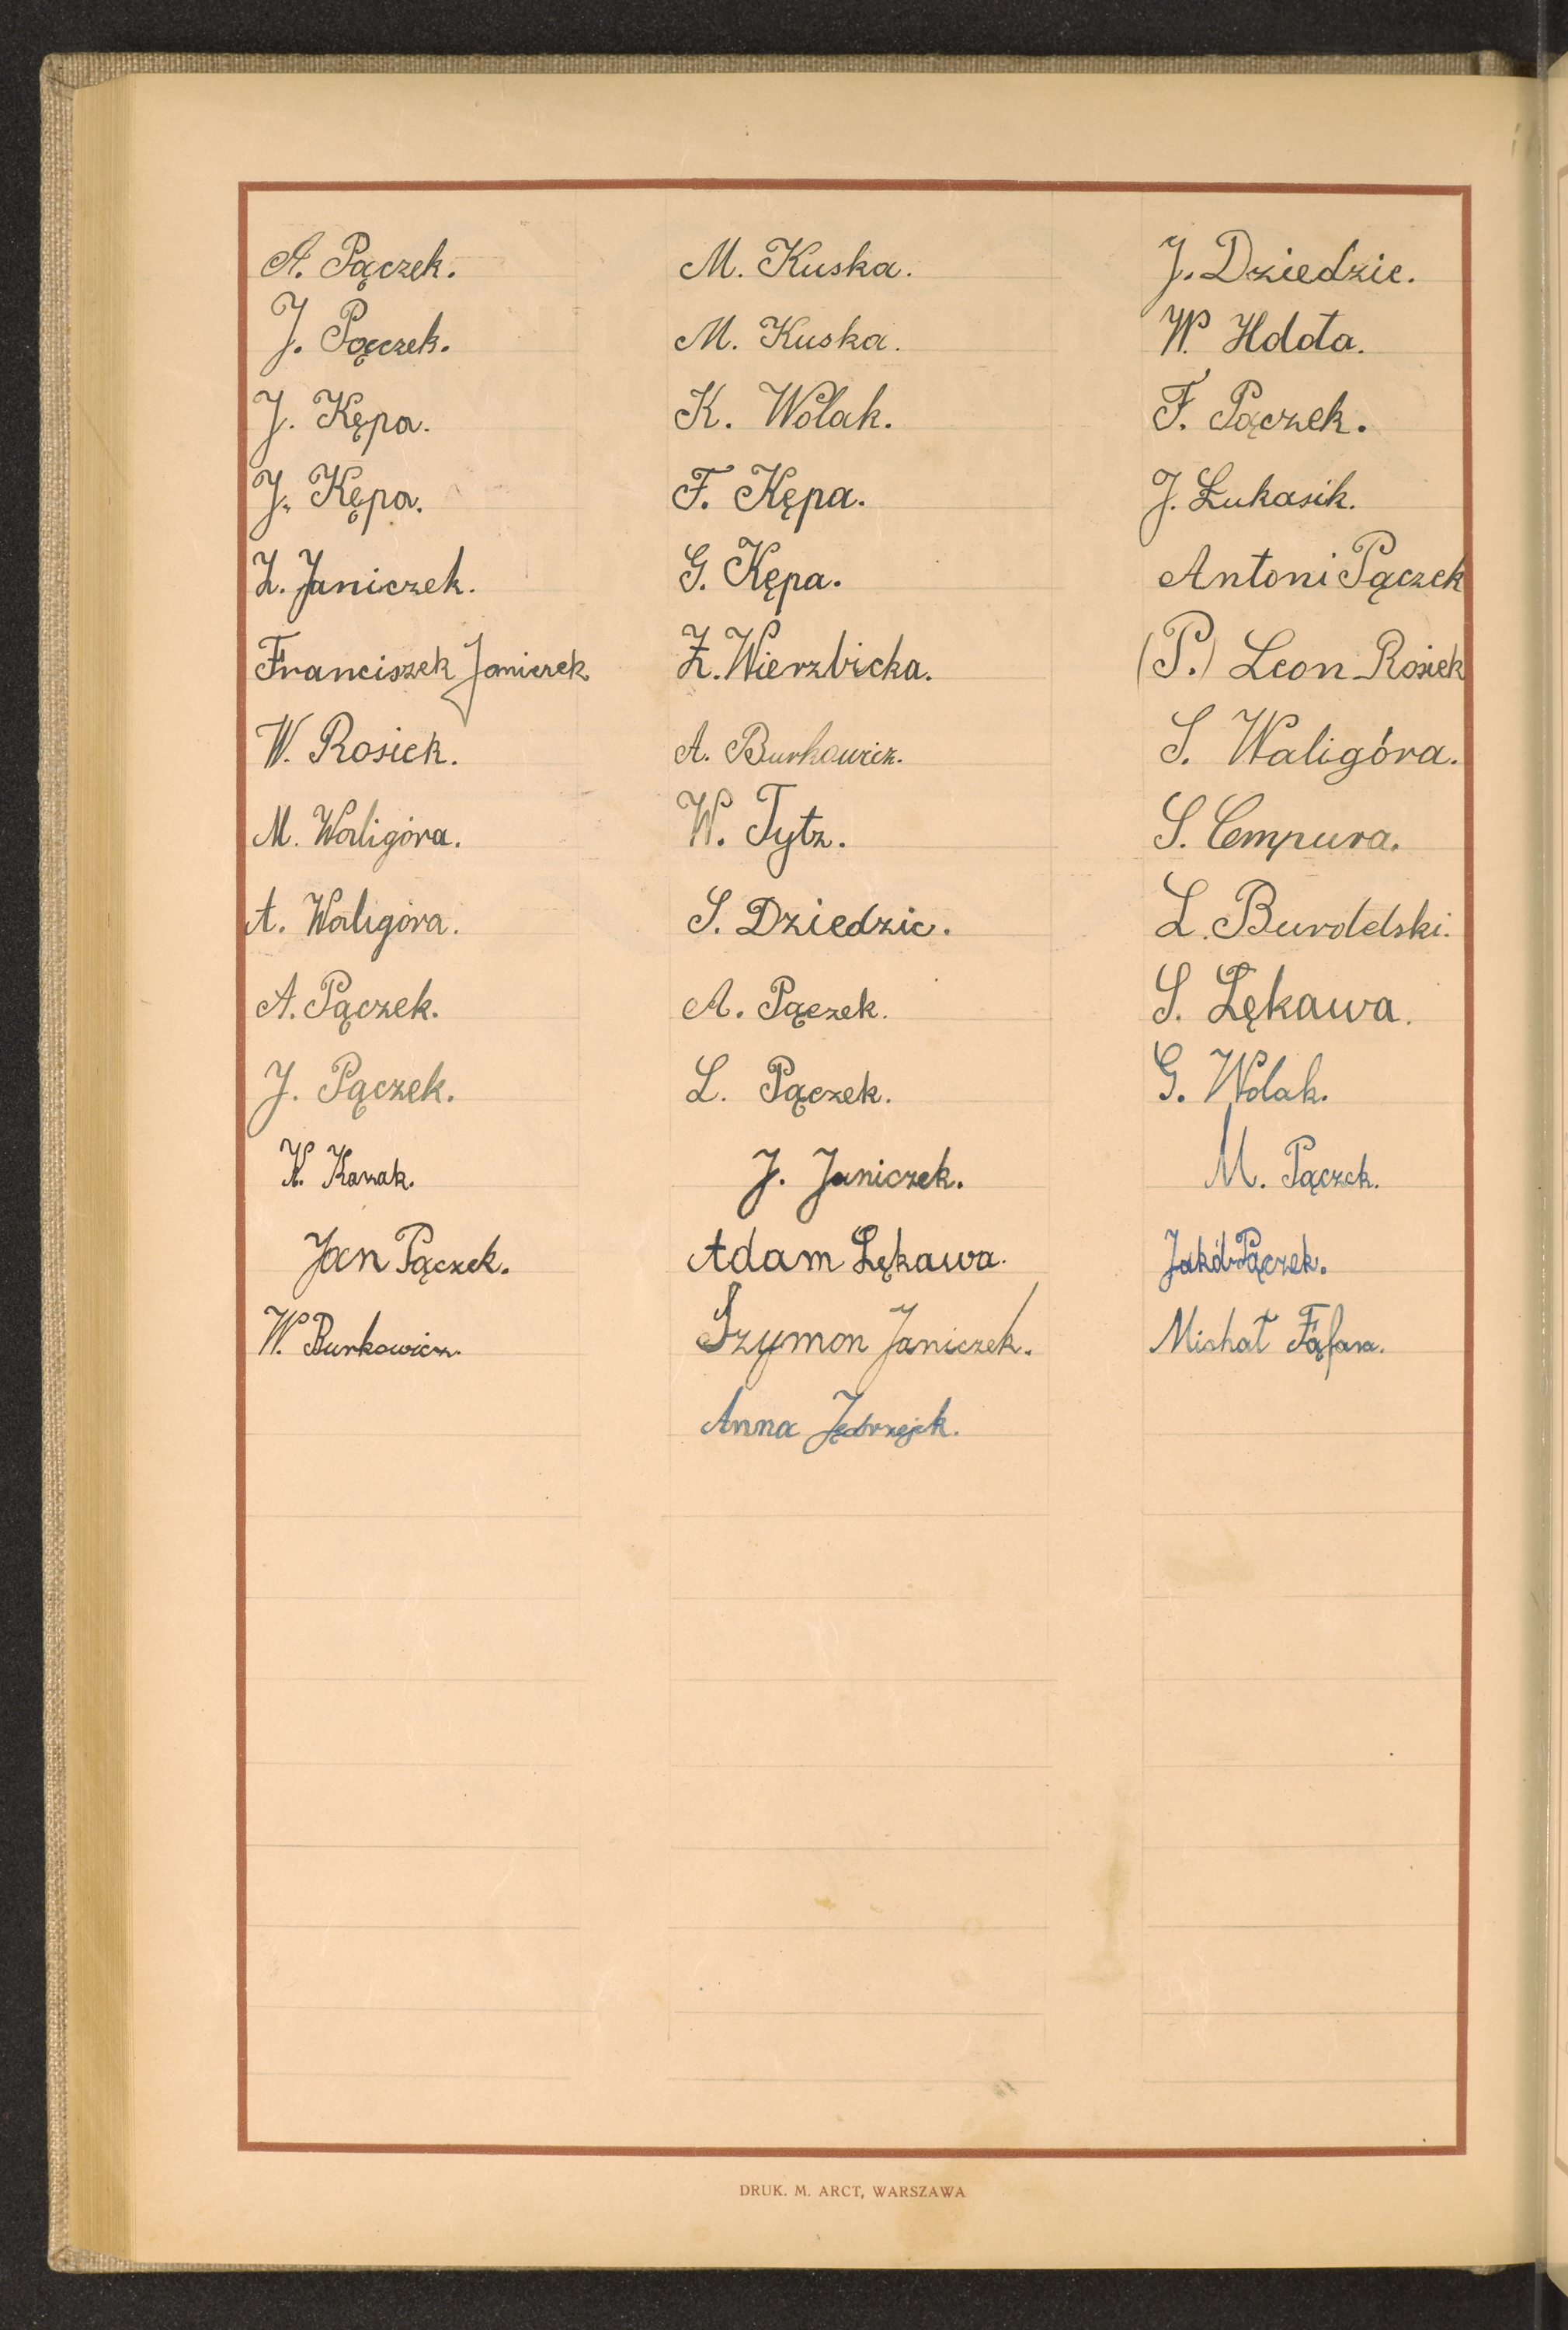 A. Pączek.
J. Pączek.
J. Kępa.
J. Kępa.
Z. Janiczek.
Franciszek Janiczek.
W. Rosiek.
M. Waligóra.
A. Waligóra.
A. Pączek.
J. Pączek.
Jan Pączek.
W. Burkowicz.
M. Kuska.
M. Kuska.
K. Wolak.
F. Kępa.
G. Kępa.
Z. Wierzbicka.
A. Burkowicz.
W. Tytz.
S. Dziedzic.
A. Pączek.
L. Pączek.
J. Janiczek.
Adam Łękawa.
Szymon Janiczek.
Anna Jędrzejek.
J. Dziedzic.
W. Hdota.
F. Pączek.
J. Łukasik.
Antoni Pączek
(P.) Leon Rosiek
S. Waligóra.
S. Cempura.
L.
S. Łękawa.
G. Wolak.
M. Pączek.
Jakób Pączek.
Michał Fąfara.
DRUK. M. ARCT, WARSZAWA